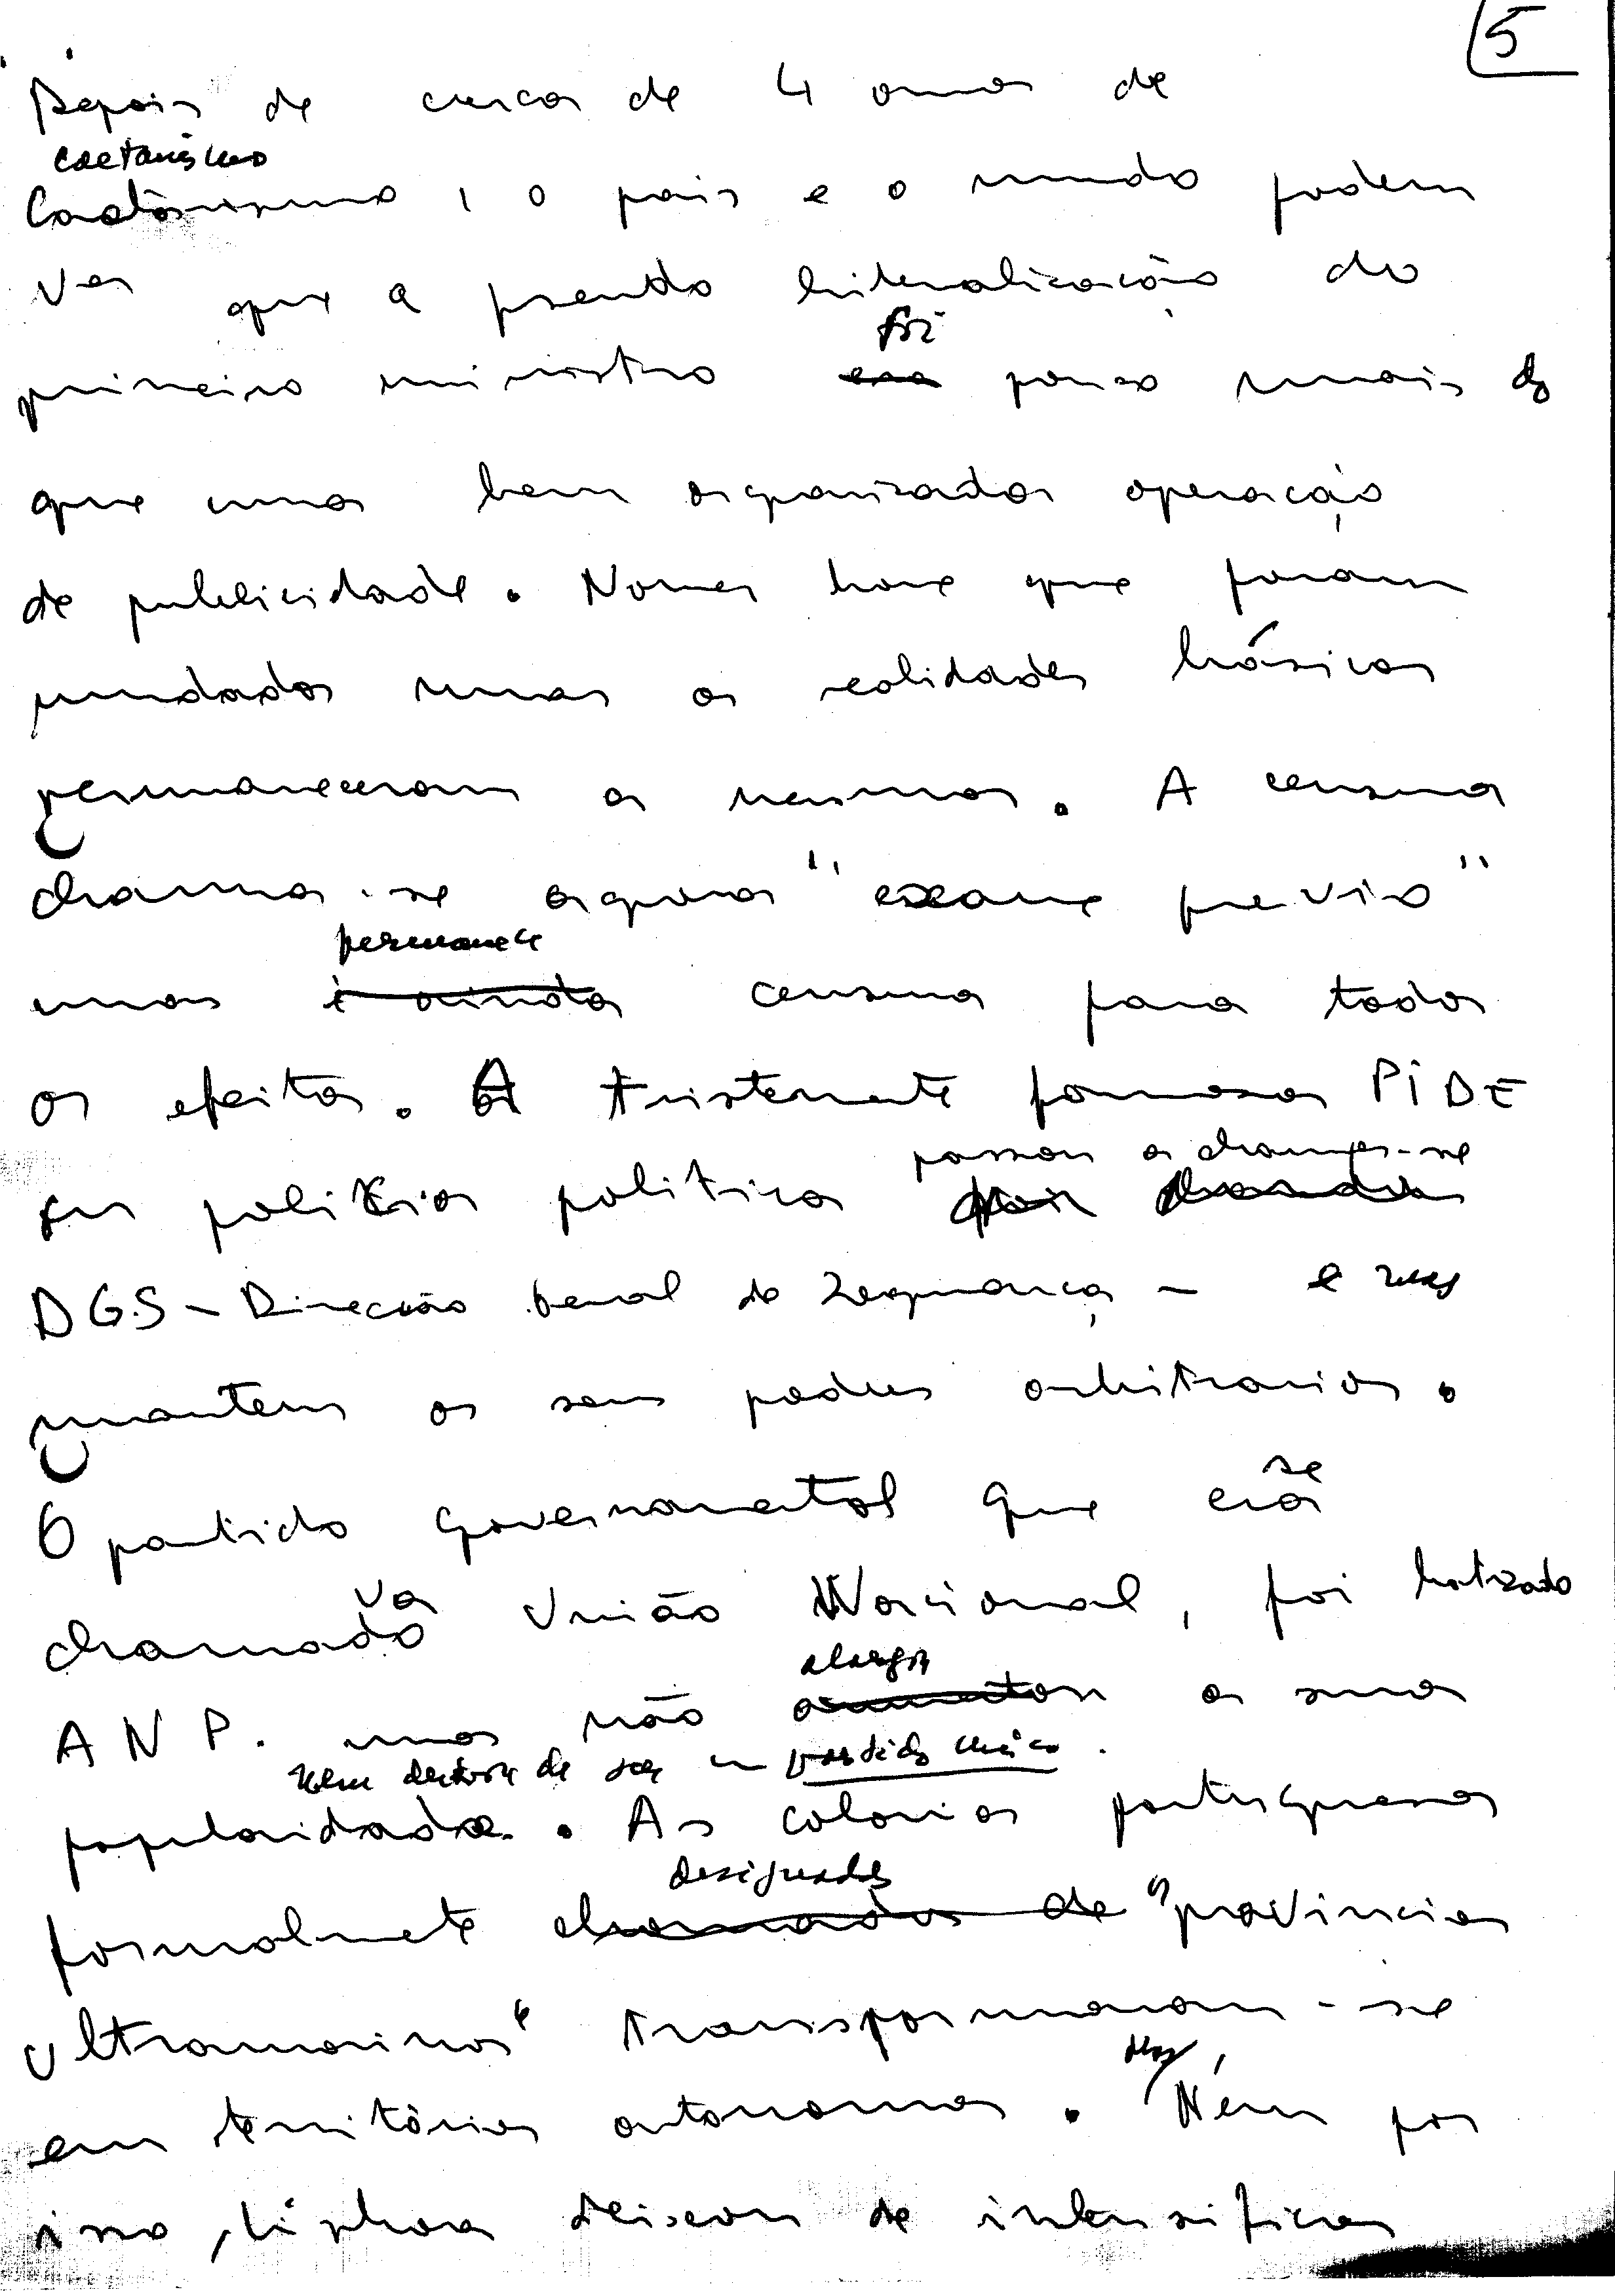 5
Depois de cerca de 4 anos de
caetanismo
Caetânismo, o pais e o mundo podem
ver que a pseudo liberalização do
foi
primeiro ministro era pouco mais do
que uma bem organizada operação
de publicidade. Nomes houve que foram
mudados mas as realidades básicas
permaneceram as mesmas. A censura
chama-se agora "exame previo"
permanece
mas é ainda censura para todos
os efeitos. A tristemente famosa PIDE
passou a chamar-se
ou policia politica foi
DGS - Direcção Geral de Segurança - e mas
mantem os seus poderes arbitrarios.
se
O partido governamental que era
va
chamado União Nacional, foi batizado
alargou
ANP. mas não aumentou a sua
nem deixou de ser um partido único.
popularidade. As colonias portuguesas
designadas
formalmente chamadas de "provincias
ultramarinas" transformaram-se
mas
em territórios autonomos. Nem por
isso, Lisboa deixou de intensificar